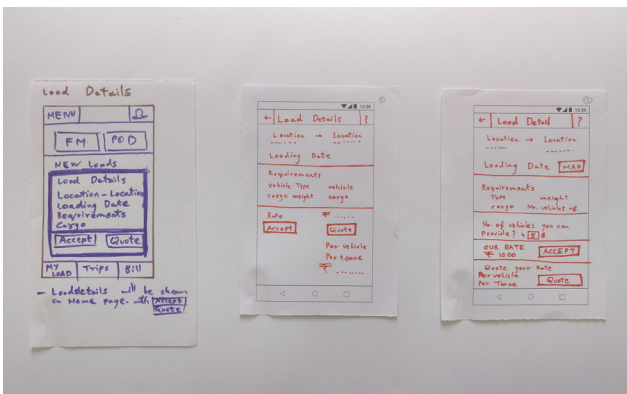 Load Details
MENU
FM POD
NEW Loads
Load Details
Location - Location
Loading Date
Requirements
Cargo
Accept Quote
MY LOAD Trips Bill
- Loaddetails will be shown
on Home page. with Accept
Quote
12:30
← Load Details ?
Location → Location
Loading Date
Requirements
Vehicle Type vehicle
cargo weight cargo
Rate ₹ ........
Accept Quote
Per vehicle
Per tonne
₹ ........
12:30
← Load Detail ?
Location → Location
Loading Date MAP
Requirements
Type weight
cargo No. vehicles
No. of vehicles you can
provide?
OUR RATE ACCEPT
₹ 1000
Quote your Rate
Per vehicle
Per Tonne Quote